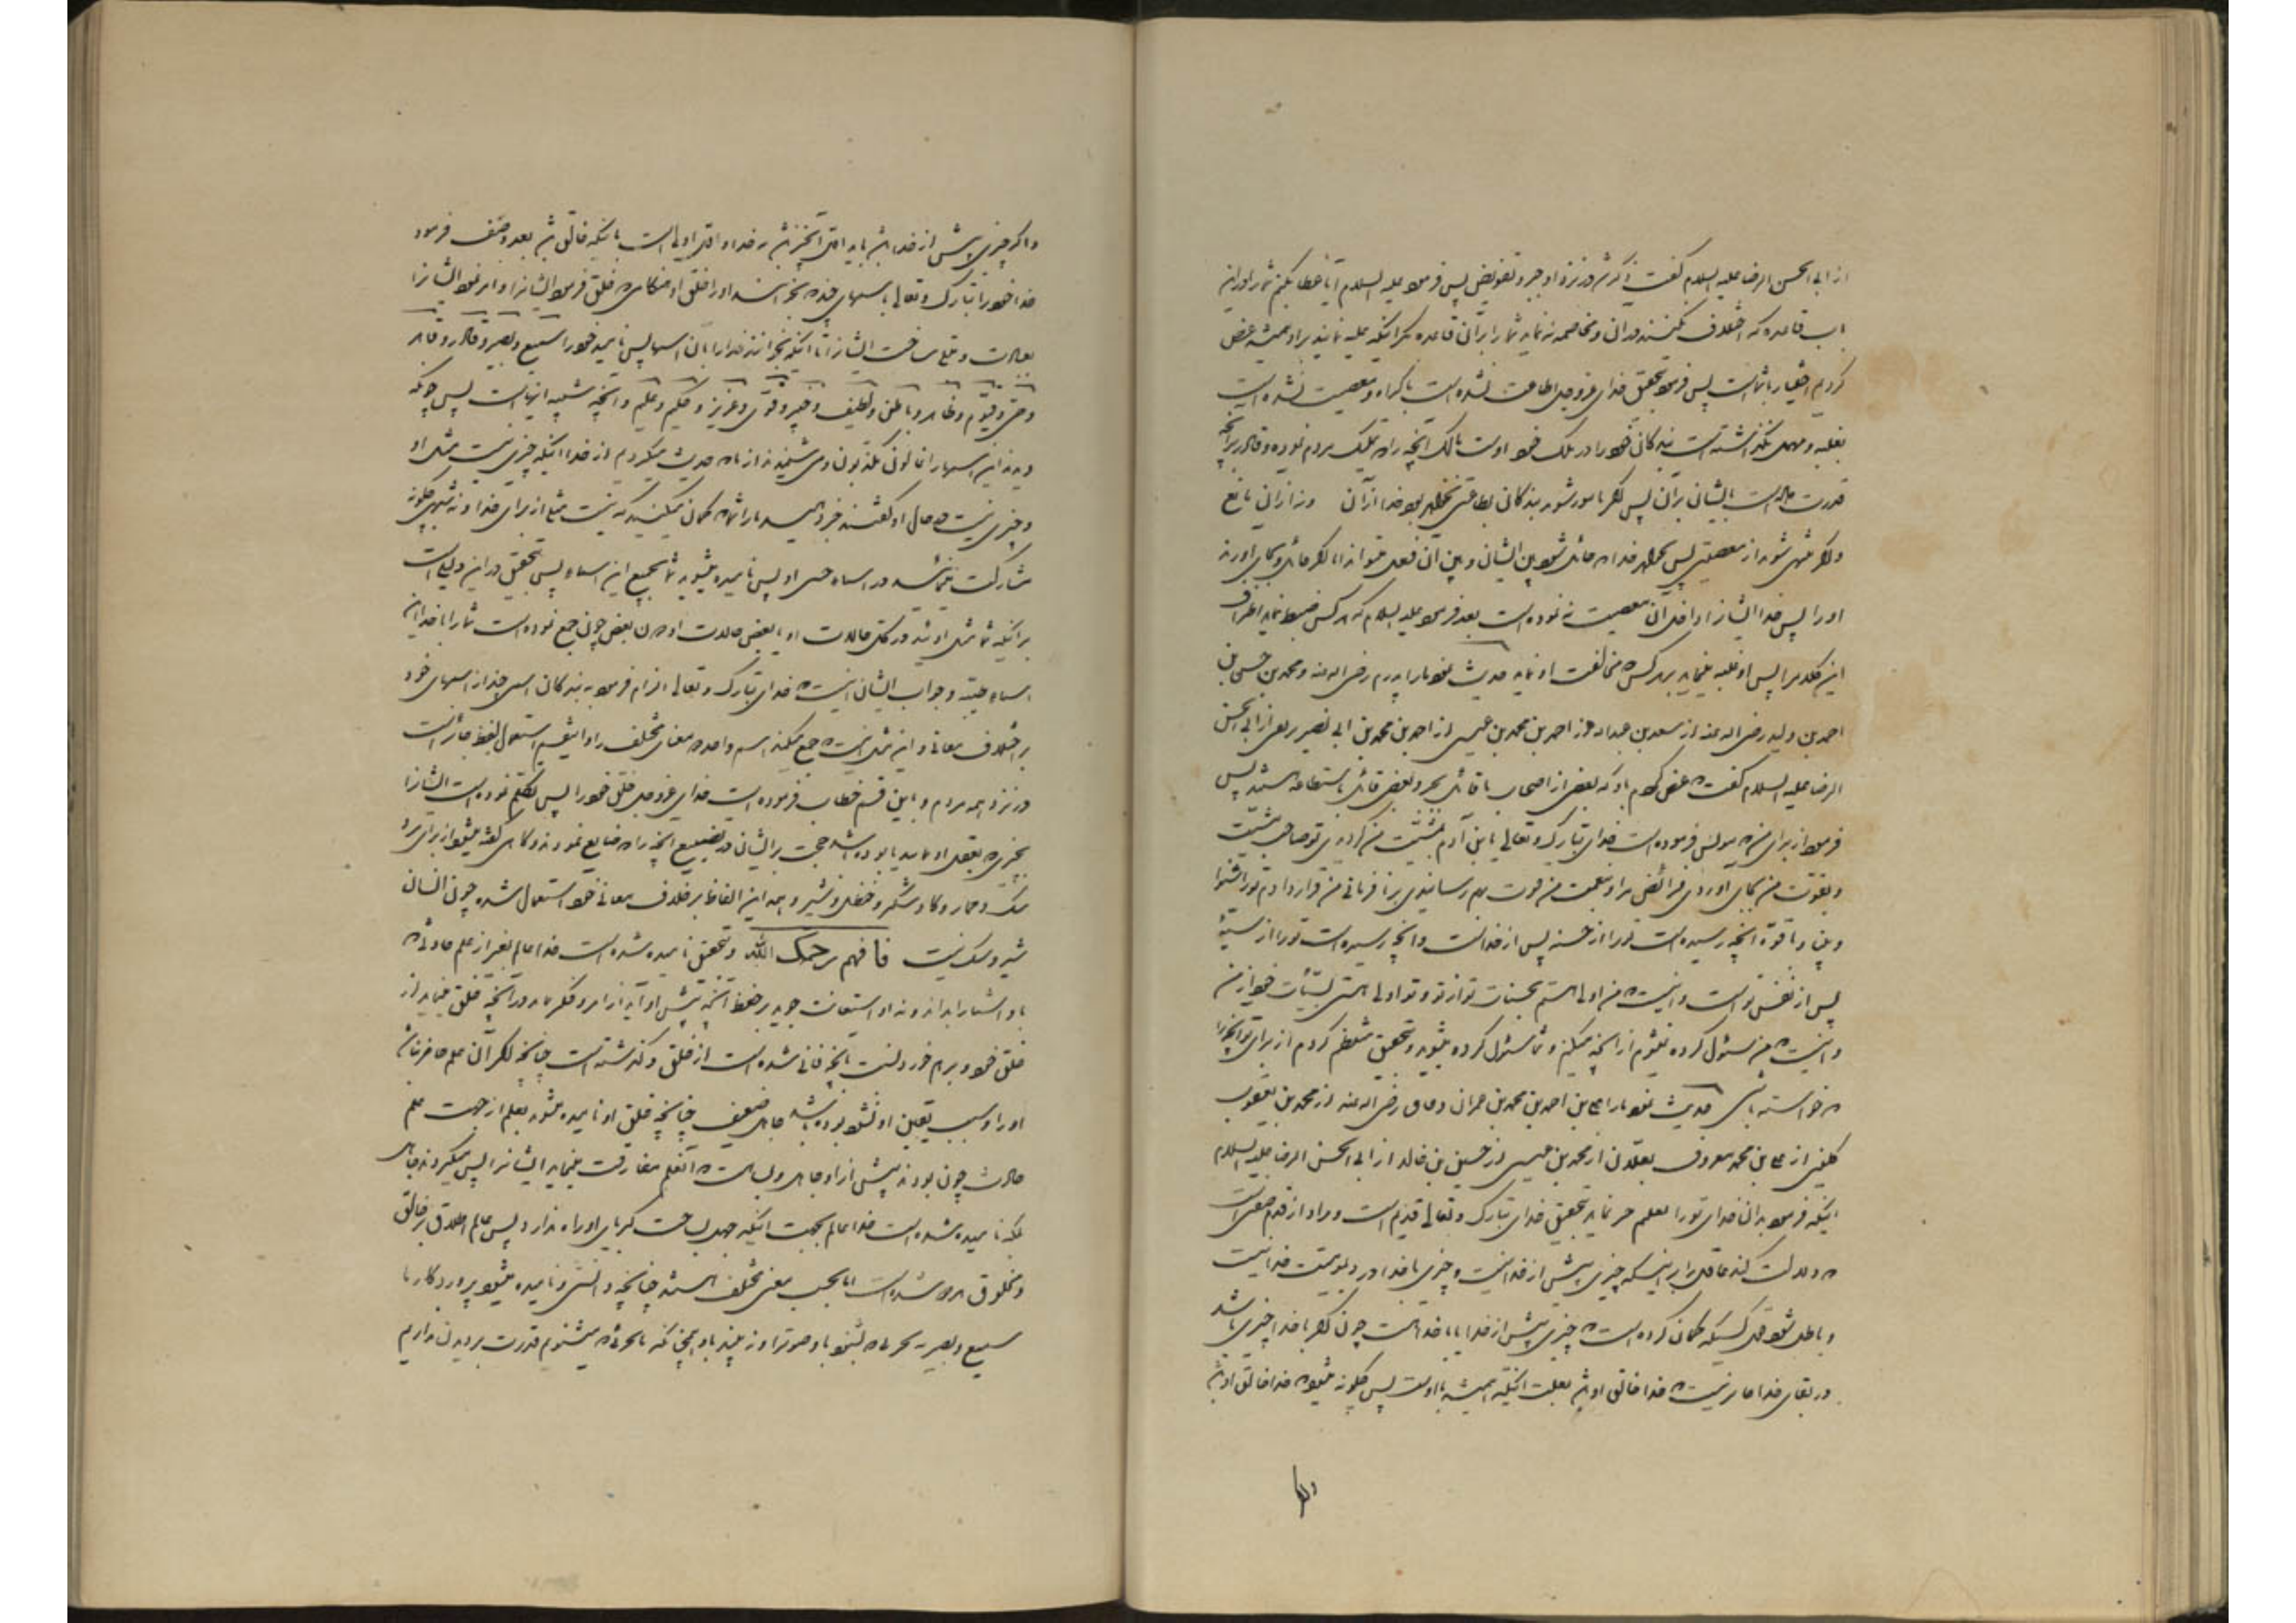 از ابی الحسن الرضا علیه السلام گفت ذکر شد در نزد او جبر و تفویض پس فرمود علیه السلام آیا عطا بکنم شما را در این
باب قاعده که اختلاف نکنید در آن و مخاصمه نه نماید شما را بر آن قاعده مگر اینکه غلبه نمایید بر او همیشه عرض
کردیم اختیار با شماست پس فرمود بتحقیق خدای عزوجل اطاعت نشده است باکراه و معصیت نشده است
بغلبه و مهمل نگذاشته است بندگان خود را در ملک خود اوست مالک آنچه را که تملیک مردم نموده و قادر بر آنچه
قدرت داده است ایشان بر آن پس اگر مامور شوند بندگان بطاعتی نخواهد بود خدا از آن و نه از آن مانع
و اگر منتهی شوند از معصیتی پس بخواهد خدا که حائل شود بین ایشان و بین آن فعل میتواند اما اگر حائل و بجای آورند
او را پس خدا ایشان را داخل آن معصیت نه نموده است بعد فرمود علیه السلام که هر کس ضبط نماید اطراف
این کلام را پس او غلبه مینماید بر هر کس که مخالفت او نماید حدیث نمود ما را پدرم رضی الله عنه و محمد بن حسن بن
احمد بن ولید رضی الله عنه از سعد بن عبدالله از احمد بن محمد بن عیسی از احمد بن محمد بن ابی نصیر بزنطی از ابی الحسن
الرضا علیه السلام گفت که عرض کردم باو که بعضی از اصحاب ما قائل بجبر و بعضی قائل باستطاعه هستند پس
فرمود از برای من که بنویس فرموده است خدای تبارک و تعالی یا بن آدم بمشیت من گردیدی تو صاحب مشیت
و بقوت من بجای آوردی فرائض مرا و بنعمت من قوت بهم رسانیدی بر نافرمانی من قرار دادم تو را شنوا
و بین و با قوة آنچه رسیده است تو را از حسنه پس از خداست و آنچه رسیده است تو را از سیئه
پس از نفس تو است و اینست که من اولی هستم بحسنات تو از تو و تو اولی هستی بسیئات خود از من
و اینست که من مسئول کرده نمیشوم از آنچه میکنم و شما مسئول کرده میشوید و بتحقیق منتظم کردم از برای تو آنچه را
که خواسته باشی حدیث نمود ما را علی بن احمد بن محمد بن عمران دقاق رضی الله عنه از محمد بن یعقوب
کلینی از علی بن محمد معروف بعلان از محمد بن عیسی از حسین بن خالد از ابی الحسن الرضا علیه السلام
اینکه فرمود بدان خدای تو را تعلیم خیر نماید بتحقیق خدای تبارک و تعالی قدیم است و مراد از قدم صفتی است
که دلالت کند عاقل را بر اینکه چیزی پیش از خدا نیست و چیزی با خدا در دیمومیت خدا نیست
و باطل شود قول کسیکه گمان کرده است که چیزی پیش از خدا یا با خدا هست چون اگر با خدا چیزی باشد
در بقای خدا جایز نیست که خدا خالق او باشد بعلت اینکه همیشه با اوست پس چگونه میشود که خدا خالق او باشد
و اگر
و اگر چیزی پیش از خدا باشد باید اول آنچیز باشد نه خدا و اول اولی است باینکه خالق باشد بعد وصف فرمود
خدا خود را تبارک و تعالی باسمهای چند که بخوانند او را خلق او هنگامی که خلق فرمود ایشان را و امر نمود ایشان را
بعبادت و مبتلی ساخت ایشان را تا اینکه بخوانند خدا را بآن اسمها پس نامید خود را سمیع و بصیر و قادر و قاهر
و حی و قیوم و ظاهر و باطن و لطیف و خبیر و قوی و عزیز و حکیم و علیم و آنچه شبیه اینهاست پس چونکه
دیدند این اسمها را غالون مکذبون و می شنیدند از ما که حدیث میکردیم از خدا اینکه چیزی نیست مثل او
و چیزی نیست در حال او گفتند خبر دهید ما را شما که گمان میکنید که نیست مثلی از برای خدا و نه شبهی چگونه
مشارکت نموده‌اید در اسماء حسنی او پس نامیده میشوید شما بجمیع این اسماء پس بتحقیق در این دلیل است
بر اینکه شما مثل اوئید در کل حالات او یا بعض حالات او دون بعض چون جمع نموده است شما را با خدا این
اسماء طیبه و جواب ایشان اینست که خدای تبارک و تعالی الزام فرمود به بندگان اسمی چند از اسمهای خود
بر اختلاف معانی و این مثل اینست که جمع میکند اسم واحد دو معنای مختلف را و اینقسم استعمال لفظ جایز است
در نزد همه مردم و باین قسم خطاب فرموده است خدای عزوجل خلق خود را پس تکلم نموده است ایشان را
بچیزی که بعقل او نمایند تا بوده باشد حجت بر ایشان در تضییع آنچه را که ضایع نمودند و گاهی گفته میشود از برای مرد
سگ و حمار و گاو و شکر و حنظل و شیر و همه این الفاظ بر خلاف معانی خود استعمال شده چون انسان
شیر و سگ نیست فافهم رحمک الله و بتحقیق نامیده شده است خدا عالم بغیر از علم حادثی که
باو اشیاء را بداند و نه او استعانت جوید بر حفظ آنچه پیش او آید از امر و فکر نماید در آنچه خلق مینماید از
خلق خود و بر هم خوردنست آنچه فانی شده است از خلق و گذشته است چنانچه اگر آن علم حاضر نباشد
او را و سبب یقین او نشود بوده باشد جاهل ضعیف چنانچه خلق او نامیده میشوند بعلم از جهت علم
حادث چون بودند پیش از او جاهل و بسا هست که آنعلم مفارقت مینماید ایشان را پس میگردند جاهل
بلکه نامیده شده است خدا عالم بجهت اینکه جهل بساحت کبریای او راه ندارد پس عالم اطلاق بر خالق
و مخلوق هر دو شده است اما بحسب معنی مختلف هستند چنانچه دانستی و نامیده میشود پروردگار ما
سمیع و بصیر نه بجزئی که بشنود باو صوت را و نه ببیند باو همچنانکه ما بجزئی که میشنویم قدرت بر دیدن نداریم